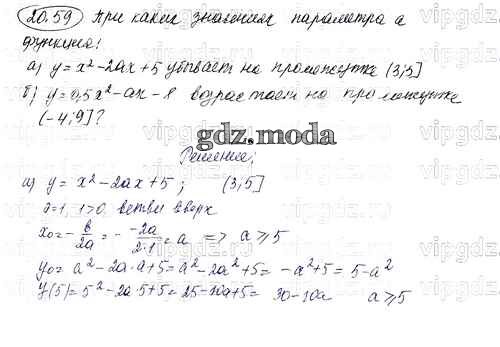 20.59 При каких значениях параметра а
функция:
а) y = x² - 2ax + 5 убывает на промежутке (3;5]
б) y = 0,5x² - ax - 8 возрастает на промежутке
(-4;9]?
gdz.moda
Решение:
а) y = x² - 2ax + 5; (3;5]
a=1, 1>0, ветви вверх
x₀ = -b/2a = - -2a/2·1 = a => a ⩾ 5
y₀ = a² - 2a·a + 5 = a² - 2a² + 5 = -a² + 5 = 5 - a²
y(5) = 5² - 2a·5 + 5 = 25 - 10a + 5 = 30 - 10a a ⩾ 5